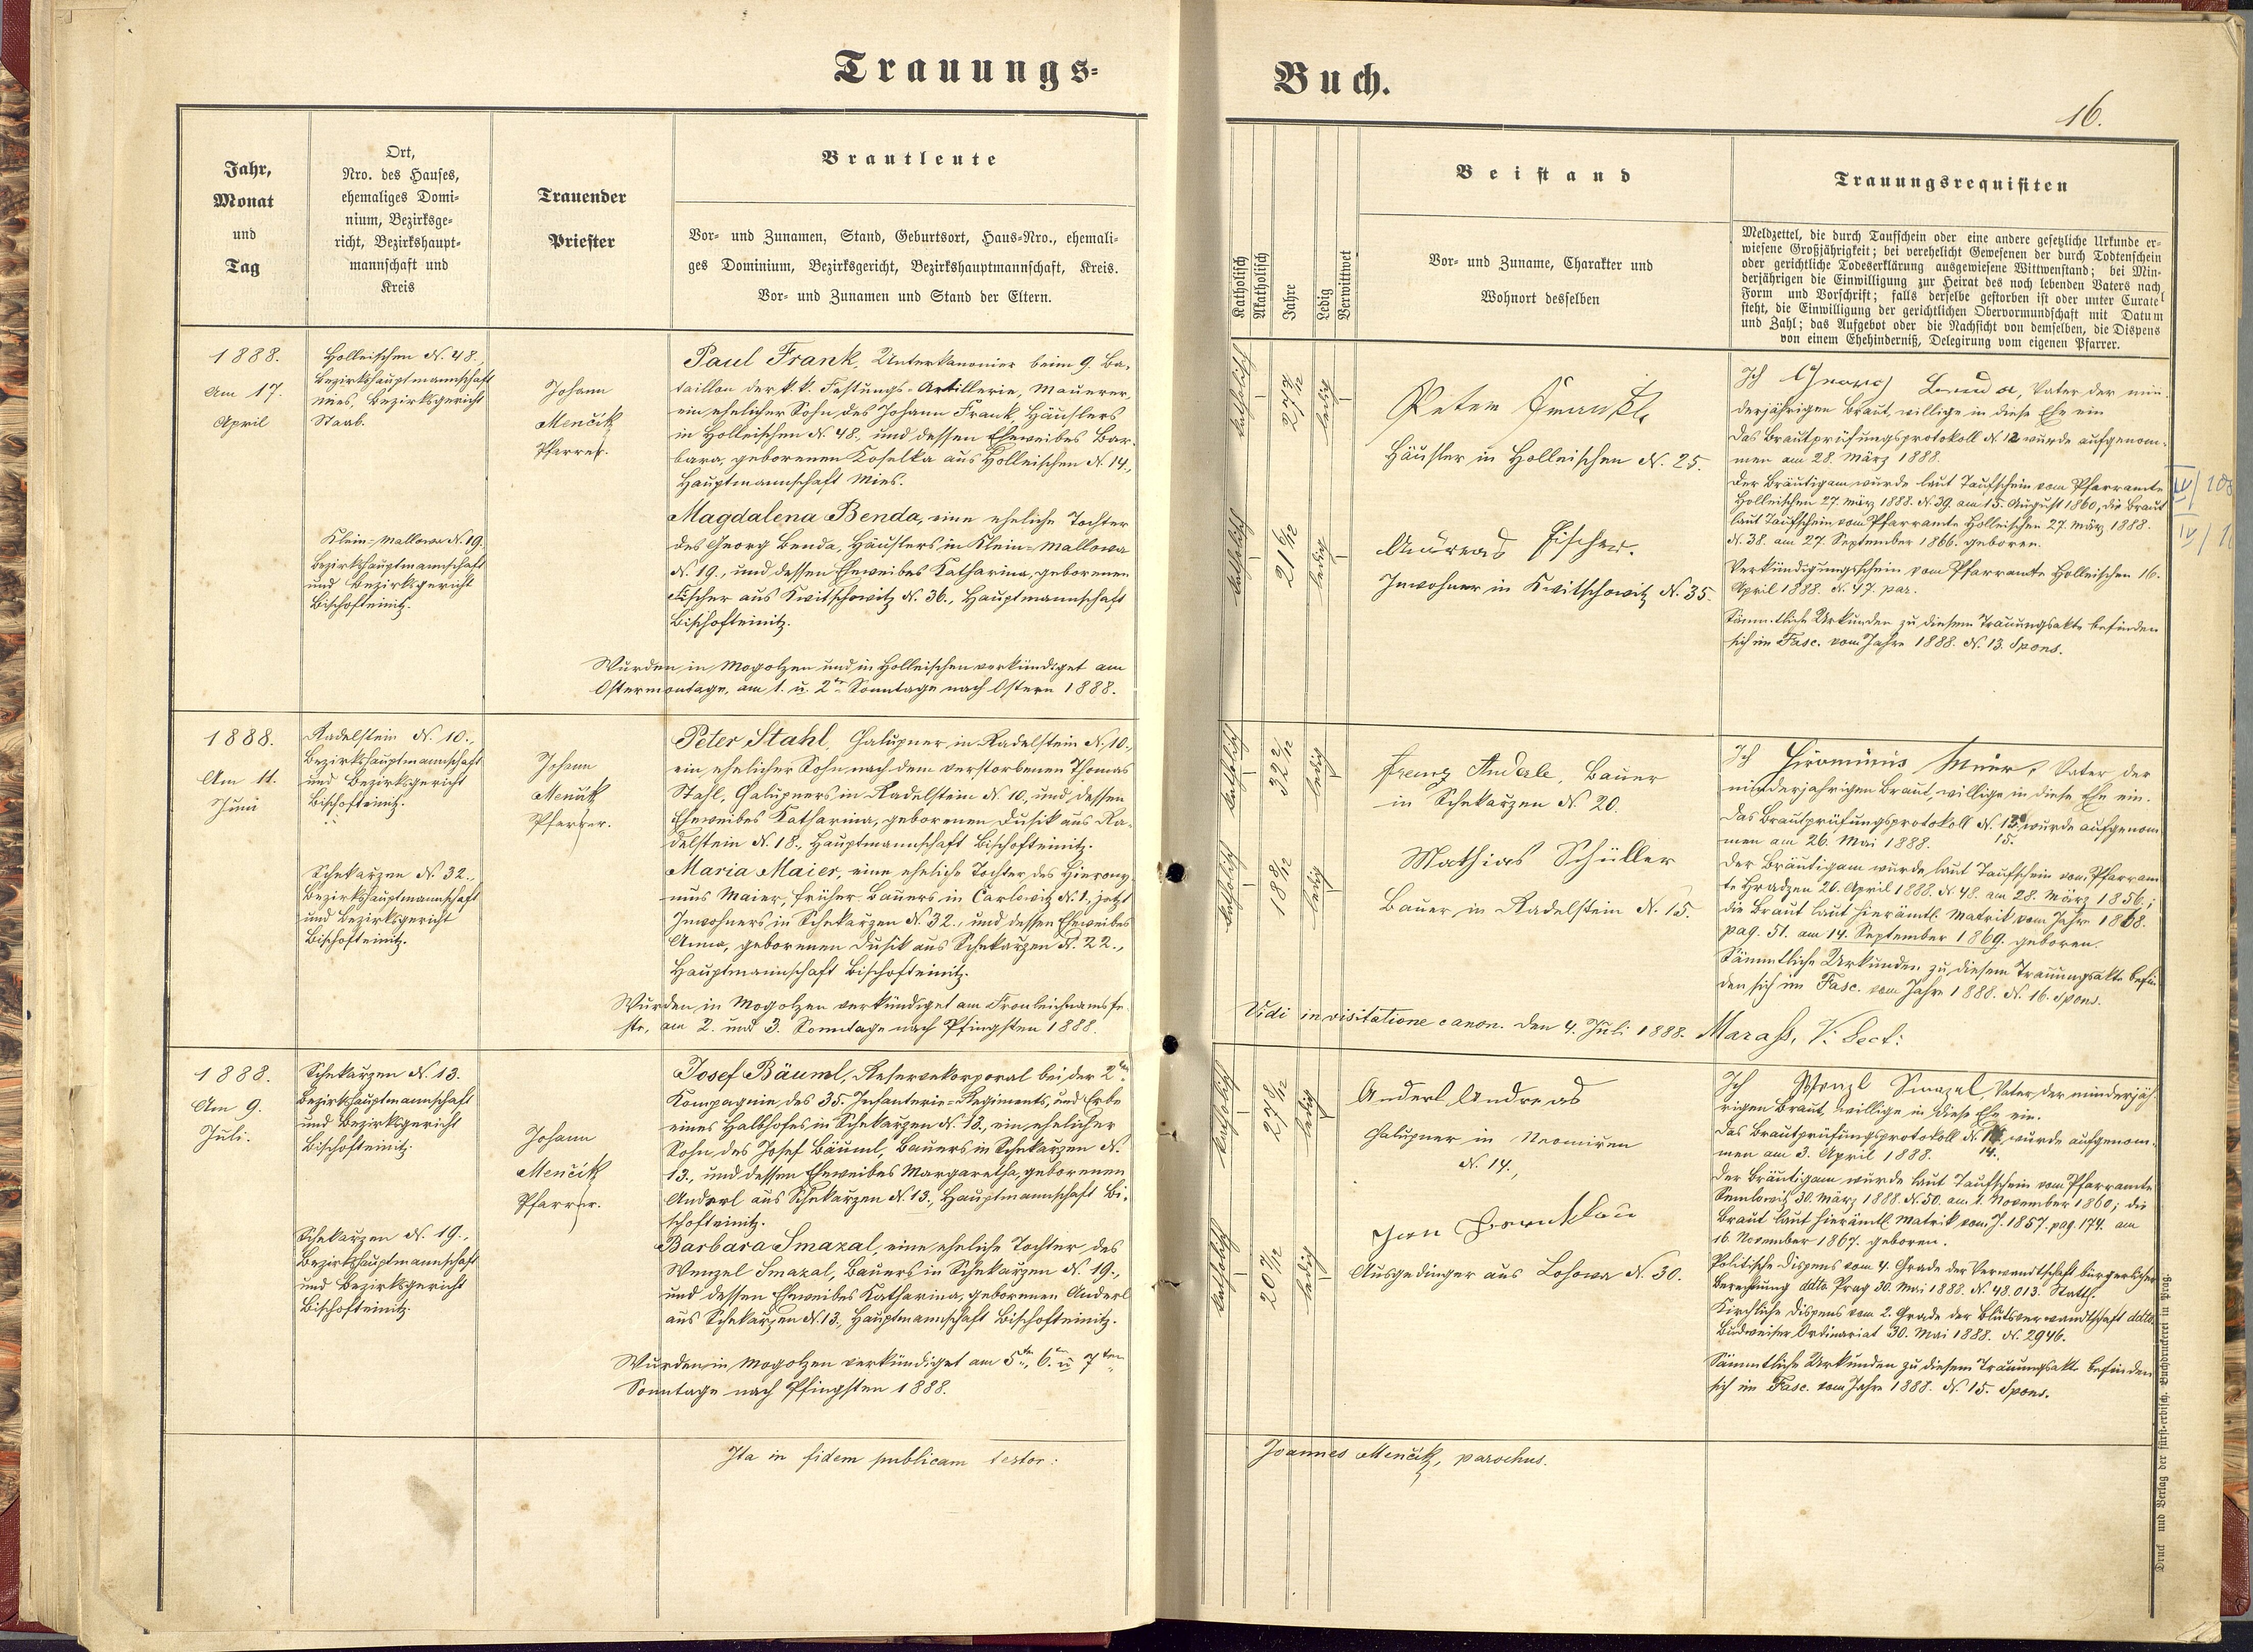 Trauungs-
Jahr,
Monat
und
Tag
Ort,
Nro. des Hauses,
ehemaliges Domi-
nium, Bezirksge-
richt, Bezirkshaupt-
mannschaft und
Kreis
Trauender
Priester
Brautleute
Vor- und Zunamen, Stand, Geburtsort, Haus-Nro., ehemali-
ges Dominium, Bezirksgericht, Bezirkshauptmannschaft, Kreis.
Vor- und Zunamen und Stand der Eltern.
1888.
Am 17.
April
Holleischen N. 48.,
Bezirkshauptmannschaft
Mies, Bezirksgericht
Staab.
Klein-Mallowa N. 19.
Bezirkshauptmannschaft
und Bezirksgericht
Bischofteinitz.
Johann
Menčik
Pfarrer.
Paul Frank, Unterkanonier beim 9. Ba-
taillon der k. k. Festungs-Artillerie, Maurer,
ein ehelicher Sohn des Johann Frank, Häuslers
in Holleischen N. 48., und dessen Eheweibes Bar-
bara, geborenen Koselka aus Holleischen N. 14.,
Hauptmannschaft Mies.
Magdalena Benda, eine eheliche Tochter
des Georg Benda, Häuslers in Klein-Mallowa
N. 19., und dessen Eheweibes Katharina, geborenen
Fischer aus Kwitschowitz N. 36., Hauptmannschaft
Bischofteinitz.
Wurden in Mogolzen und in Holleischen verkündiget am
Ostermontage, am 1. u. 2ten Sonntage nach Ostern 1888.
1888.
Am 11.
Juni
Radelstein N. 10.,
Bezirkshauptmannschaft
und Bezirksgericht
Bischofteinitz.
Schekarzen N. 32.,
Bezirkshauptmannschaft
und Bezirksgericht
Bischofteinitz.
Johann
Menčik
Pfarrer.
Peter Stahl, Chalupner in Radelstein N. 10.,
ein ehelicher Sohn nach dem verstorbenen Thomas
Stahl, Chalupners in Radelstein N. 10., und dessen
Eheweibes Katharina, geborenen Dusik aus Ra-
delstein N. 18., Hauptmannschaft Bischofteinitz.
Maria Maier, eine eheliche Tochter des Hierony-
mus Maier, früher Bauers in Carlowitz N. 1., jetzt
Inwohners in Schekarzen N. 32., und dessen Eheweibes
Anna, geborenen Dusik aus Schekarzen N. 22.,
Hauptmannschaft Bischofteinitz.
Wurden in Mogolzen verkündiget am Fronleichnamsfe-
ste, am 2. und 3. Sonntage nach Pfingsten 1888.
1888.
Am 9.
Juli.
Schekarzen N. 13.
Bezirkshauptmannschaft
und Bezirksgericht
Bischofteinitz.
Schekarzen N. 19.,
Bezirkshauptmannschaft
und Bezirksgericht
Bischofteinitz.
Johann
Menčik
Pfarrer.
Josef Bäuml, Reservekorporal bei der 2ten
Kompagnie des 35. Infanterie-Regiments, und Erbe
eines Halbhofes in Schekarzen N. 13., ein ehelicher
Sohn des Josef Bäuml, Bauers in Schekarzen N.
13., und dessen Eheweibes Margaretha, geborenen
Anderl aus Schekarzen N. 13., Hauptmannschaft Bi-
schofteinitz.
Barbara Smazal, eine eheliche Tochter des
Wenzel Smazal, Bauers in Schekarzen N. 19.,
und dessen Eheweibes Katharina, geborenen Anderl
aus Schekarzen N. 13., Hauptmannschaft Bischofteinitz.
Wurden in Mogolzen verkündiget am 5ten, 6ten u 7ten
Sonntage nach Pfingsten 1888.
Ita in fidem publicam testor:
Buch.
16.
Katholisch
Akatholisch
Jahre
Ledig
Verwittwet
Beistand
Vor- und Zuname, Charakter und
Wohnort desselben
Trauungsrequisiten
Meldzettel, die durch Taufschein oder eine andere gesetzliche Urkunde er-
wiesene Großjährigkeit; bei verehelicht Gewesenen der durch Todtenschein
oder gerichtliche Todeserklärung ausgewiesene Wittwenstand; bei Min-
derjährigen die Einwilligung zur Heirat des noch lebenden Vaters nach
Form und Vorschrift; falls derselbe gestorben ist oder unter Curatel
steht, die Einwilligung der gerichtlichen Obervormundschaft mit Datum
und Zahl; das Aufgebot oder die Nachsicht von demselben, die Dispens
von einem Ehehinderniß, Delegirung vom eigenen Pfarrer.
katholisch
27 7/12
ledig
Peter
Häusler in Holleischen N. 25.
katholisch
21 6/12
ledig
Andreas Fischer.
Inwohner in Kwitschowitz N. 35.
Ich Georg Benda, Vater der min-
derjährigen Braut, willige in diese Ehe ein
Das Brautprüfungsprotokoll N. 12 wurde aufgenom-
men am 28. März 1888.
Der Bräutigam wurde laut Taufschein vom Pfarramte
Holleischen 27. März 1888. N. 39. am 15. August 1860, die Braut
laut Taufschein vom Pfarramte Holleischen 27. März 1888.
N. 38. am 27. September 1866. geboren.
Verkündigungsschein vom Pfarramte Holleischen 16.
April 1888. N. 47. par.
Sämmtliche Urkunden zu diesem Trauungsakte befinden
sich im Fasc. vom Jahre 1888. N. 13. Spons.
katholisch
32 2/12
ledig
Franz Anderle, Bauer
in Schekarzen N. 20.
katholisch
18 8/12
ledig
Mathias Schüller
Bauer in Radelstein N. 15.
Ich Hironimus Maier, Vater der
minderjährigen Braut, willige in diese Ehe ein.
Das Brautprüfungsprotokoll N. 15. wurde aufgenom
men am 26. Mai 1888.
Der Bräutigam wurde laut Taufschein vom Pfarram
te Hradzen 26. April 1888. N. 48. am 28. März 1856;
die Braut laut hierämtl. Matrik vom Jahre 1868.
pag. 51. am 14. September 1869. geboren.
Sämmtliche Urkunden zu diesem Trauungsakte befin-
den sich im Fasc. vom Jahre 1888. N. 16. Spons.
Vidi in visitatione canon. den 4. Juli 1888. Marass, V. Sect:
katholisch
27 8/12
ledig
Anderl Andreas
Chalupner in
N. 14.,
katholisch
20 7/12
ledig
Ausgedinger aus Losowa N. 30.
Ich Wenzl Smazal, Vater der minderjäh-
rigen Braut, willige in diese Ehe ein.
Das Brautprüfungsprotokoll N. 14. wurde aufgenom-
men am 3. April 1888.
Der Bräutigam wurde laut Taufschein vom Pfarramte
Semlowitz 30. März 1888. N. 50. am 1. November 1860; die
Braut laut hierämtl. Matrik vom J. 1857. pag. 174. am
16. November 1867. geboren.
Politische Dispens vom 4. Grade der Verwandtschaft bürgerlicher
Berechnung ddto. Prag 30. Mai 1888. N. 48.013. Statth.
Kirchliche Dispens vom 2. Grade der Blutsverwandtschaft ddto.
Budweiser Ordinariat 30. Mai 1888. N. 2946.
Sämmtliche Urkunden zu diesem Trauungsakte befinden
sich im Fasc. vom Jahre 1888. N. 15. Spons.
Joannes Menčik, parochus.
Druck und Verlag der fürst-erzbisch. Buchdruckerei in Prag.